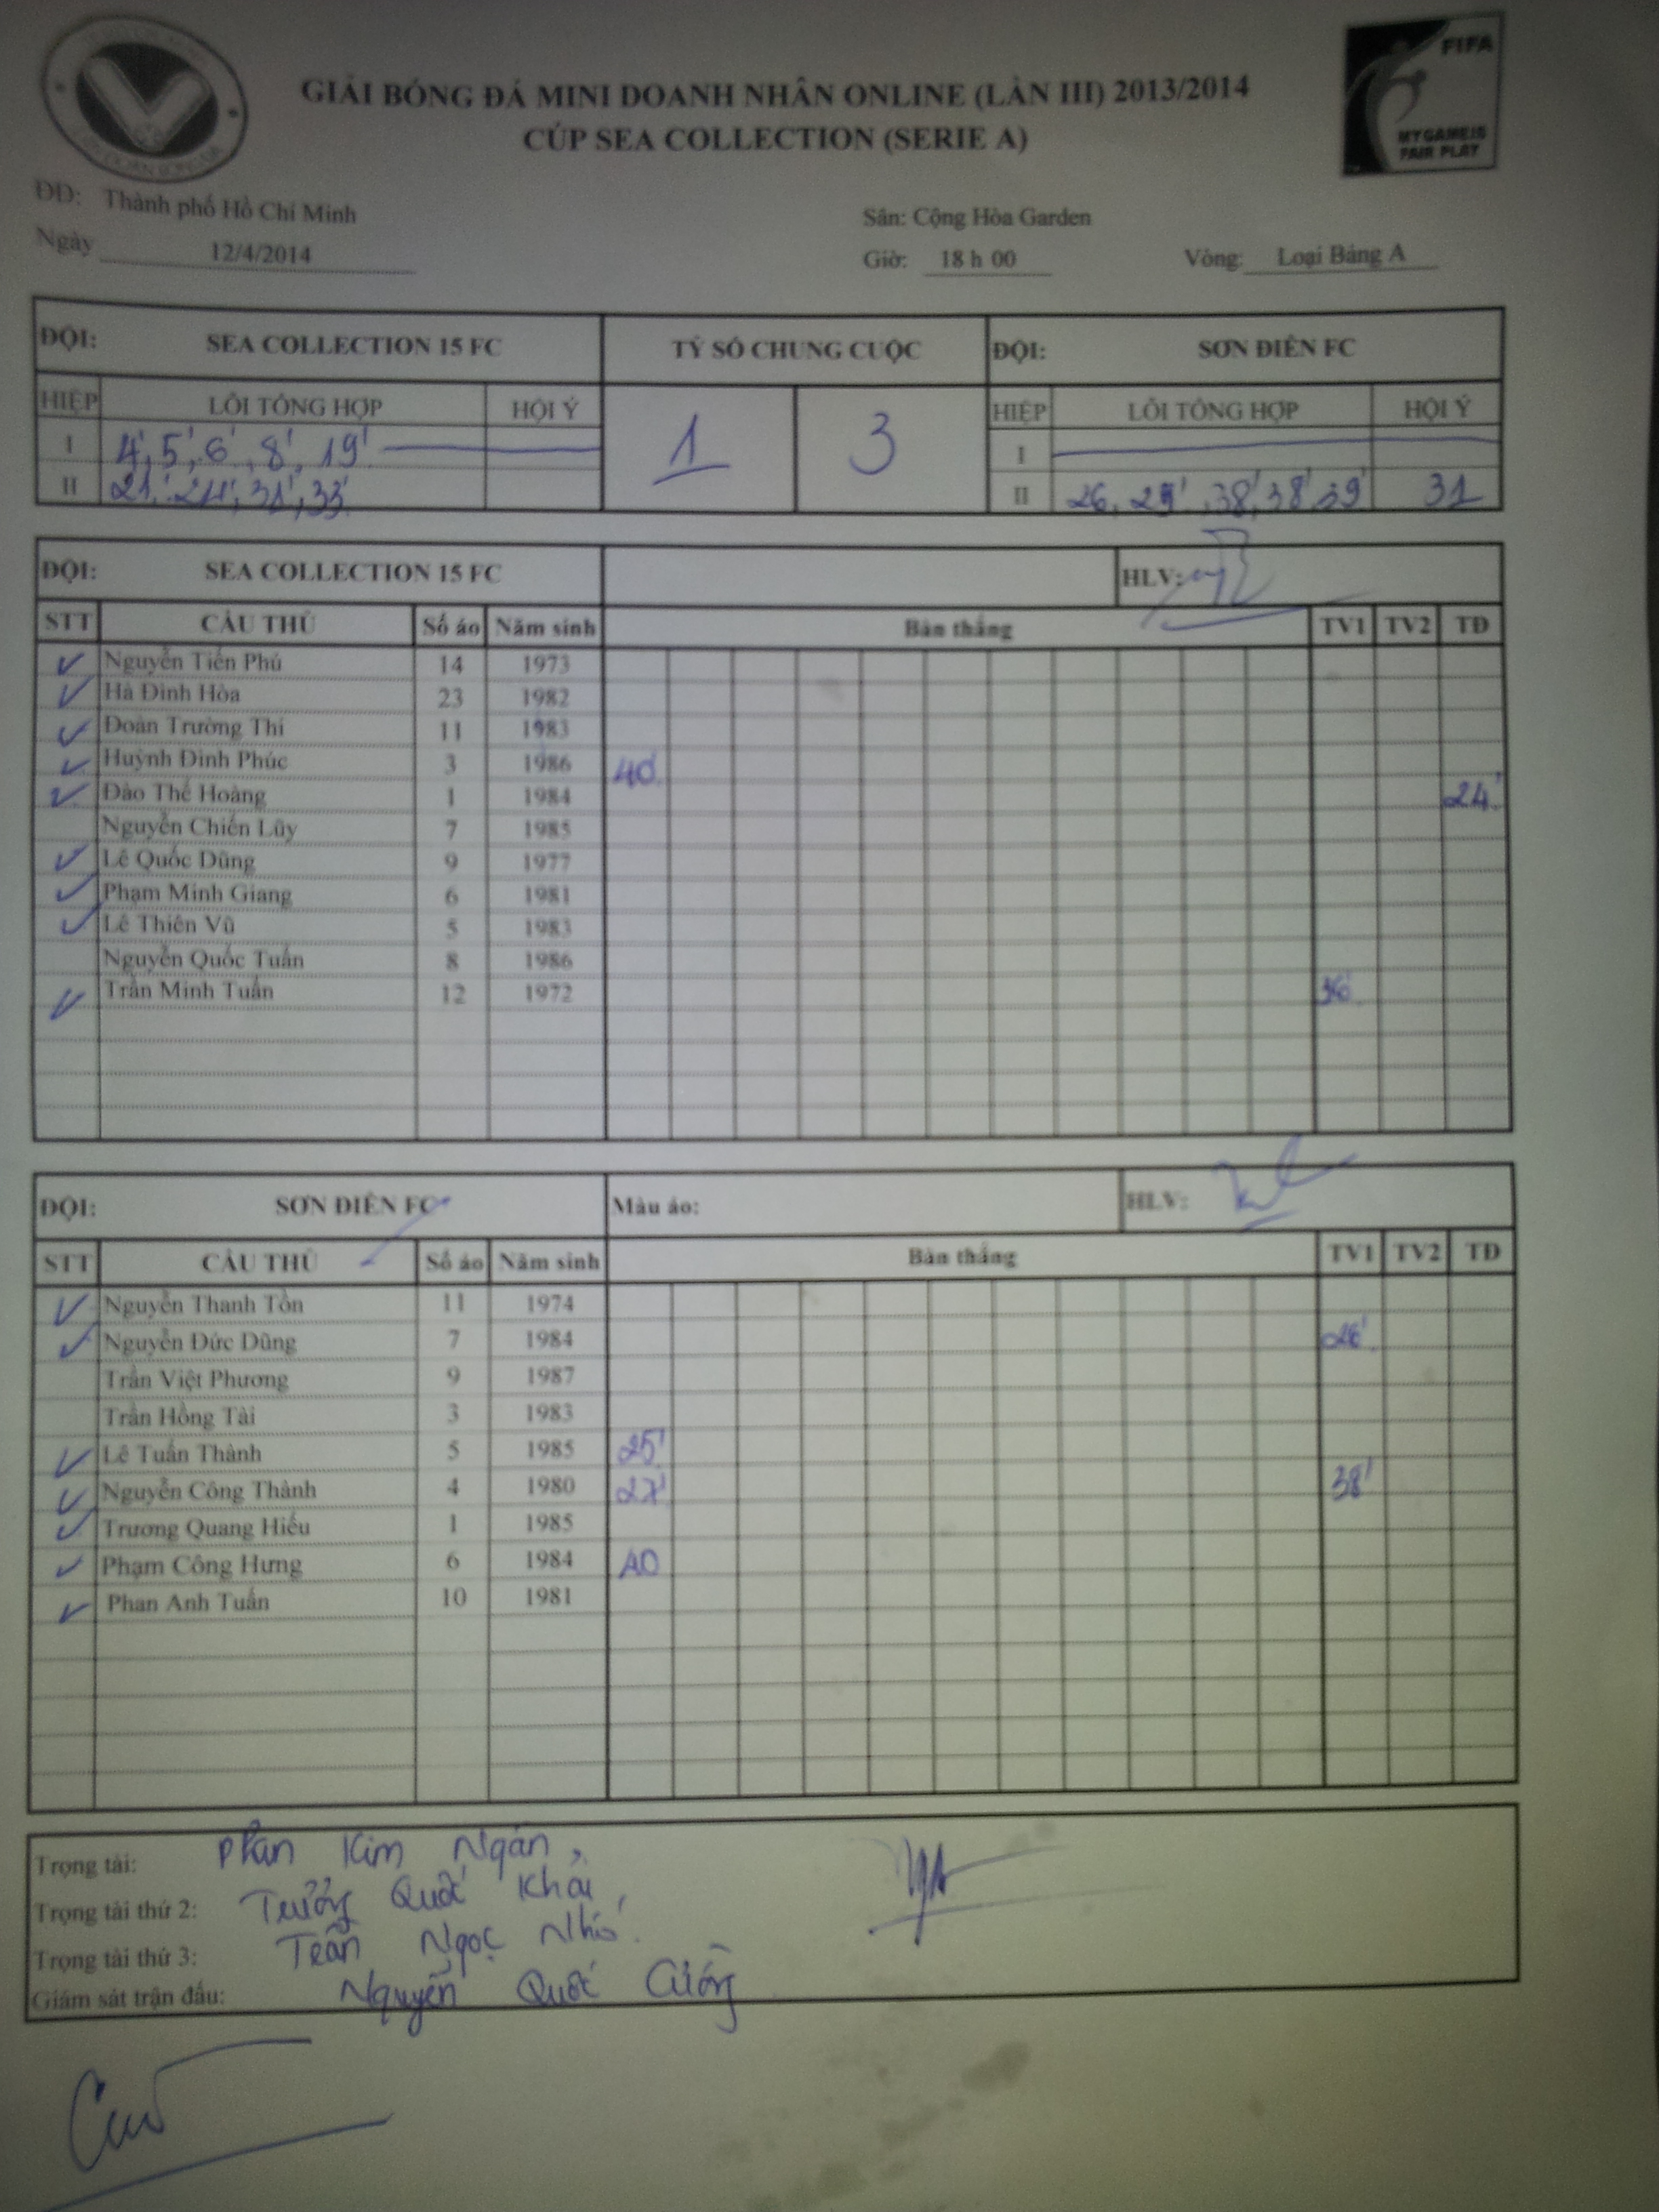 GIẢI BÓNG ĐÁ MINI DOANH NHÂN ONLINE (LẦN III) 2013/2014
CÚP SEA COLLECTION (SERIE A)
FIFA
MY GAME IS
FAIR PLAY
ĐĐ: Thành phố Hồ Chí Minh
Sân: Cộng Hòa Garden
Ngày 12/4/2014
Giờ: 18 h 00
Vòng: Loại Bảng A
ĐỘI: SEA COLLECTION 15 FC TỶ SỐ CHUNG CUỘC ĐỘI: SƠN ĐIỀN FC
HIỆP LỖI TỔNG HỢP HỘI Ý 1 3 HIỆP LỖI TỔNG HỢP HỘI Ý
I 4', 5', 6', 8', 19' I
II 21', 24', 31', 33' II 26, 29', 38', 38' 39' 31
ĐỘI: SEA COLLECTION 15 FC HLV:
STT CẦU THỦ Số áo Năm sinh Bàn thắng TV1 TV2 TĐ
Nguyễn Tiến Phú 14 1973
Hà Đình Hòa 23 1982
Đoàn Trường Thi 11 1983
Huỳnh Đình Phúc 3 1986 40'
Đào Thế Hoàng 1 1984 24'
Nguyễn Chiến Lũy 7 1985
Lê Quốc Dũng 9 1977
Phạm Minh Giang 6 1981
Lê Thiên Vũ 5 1983
Nguyễn Quốc Tuấn 8 1986
Trần Minh Tuấn 12 1972 36'
ĐỘI: SƠN ĐIỀN FC Màu áo: HLV:
STT CẦU THỦ Số áo Năm sinh Bàn thắng TV1 TV2 TĐ
Nguyễn Thanh Tồn 11 1974
Nguyễn Đức Dũng 7 1984 26'
Trần Việt Phương 9 1987
Trần Hồng Tài 3 1983
Lê Tuấn Thành 5 1985 25'
Nguyễn Công Thành 4 1980 27' 38'
Trương Quang Hiếu 1 1985
Phạm Công Hưng 6 1984 40
Phan Anh Tuấn 10 1981
Trọng tài: Phan Kim Ngân,
Trọng tài thứ 2: Trương Quốc Khải,
Trọng tài thứ 3: Trần Ngọc Nhớ.
Giám sát trận đấu: Nguyễn Quốc Cường